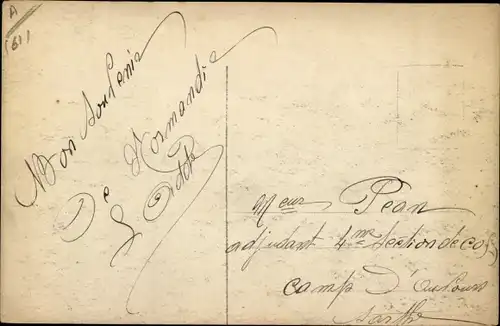 A
5611
Bon Souvenir
De Normandie
Meur Pean
adjudant 4me Section de
camp D'Auvours
Sarthe